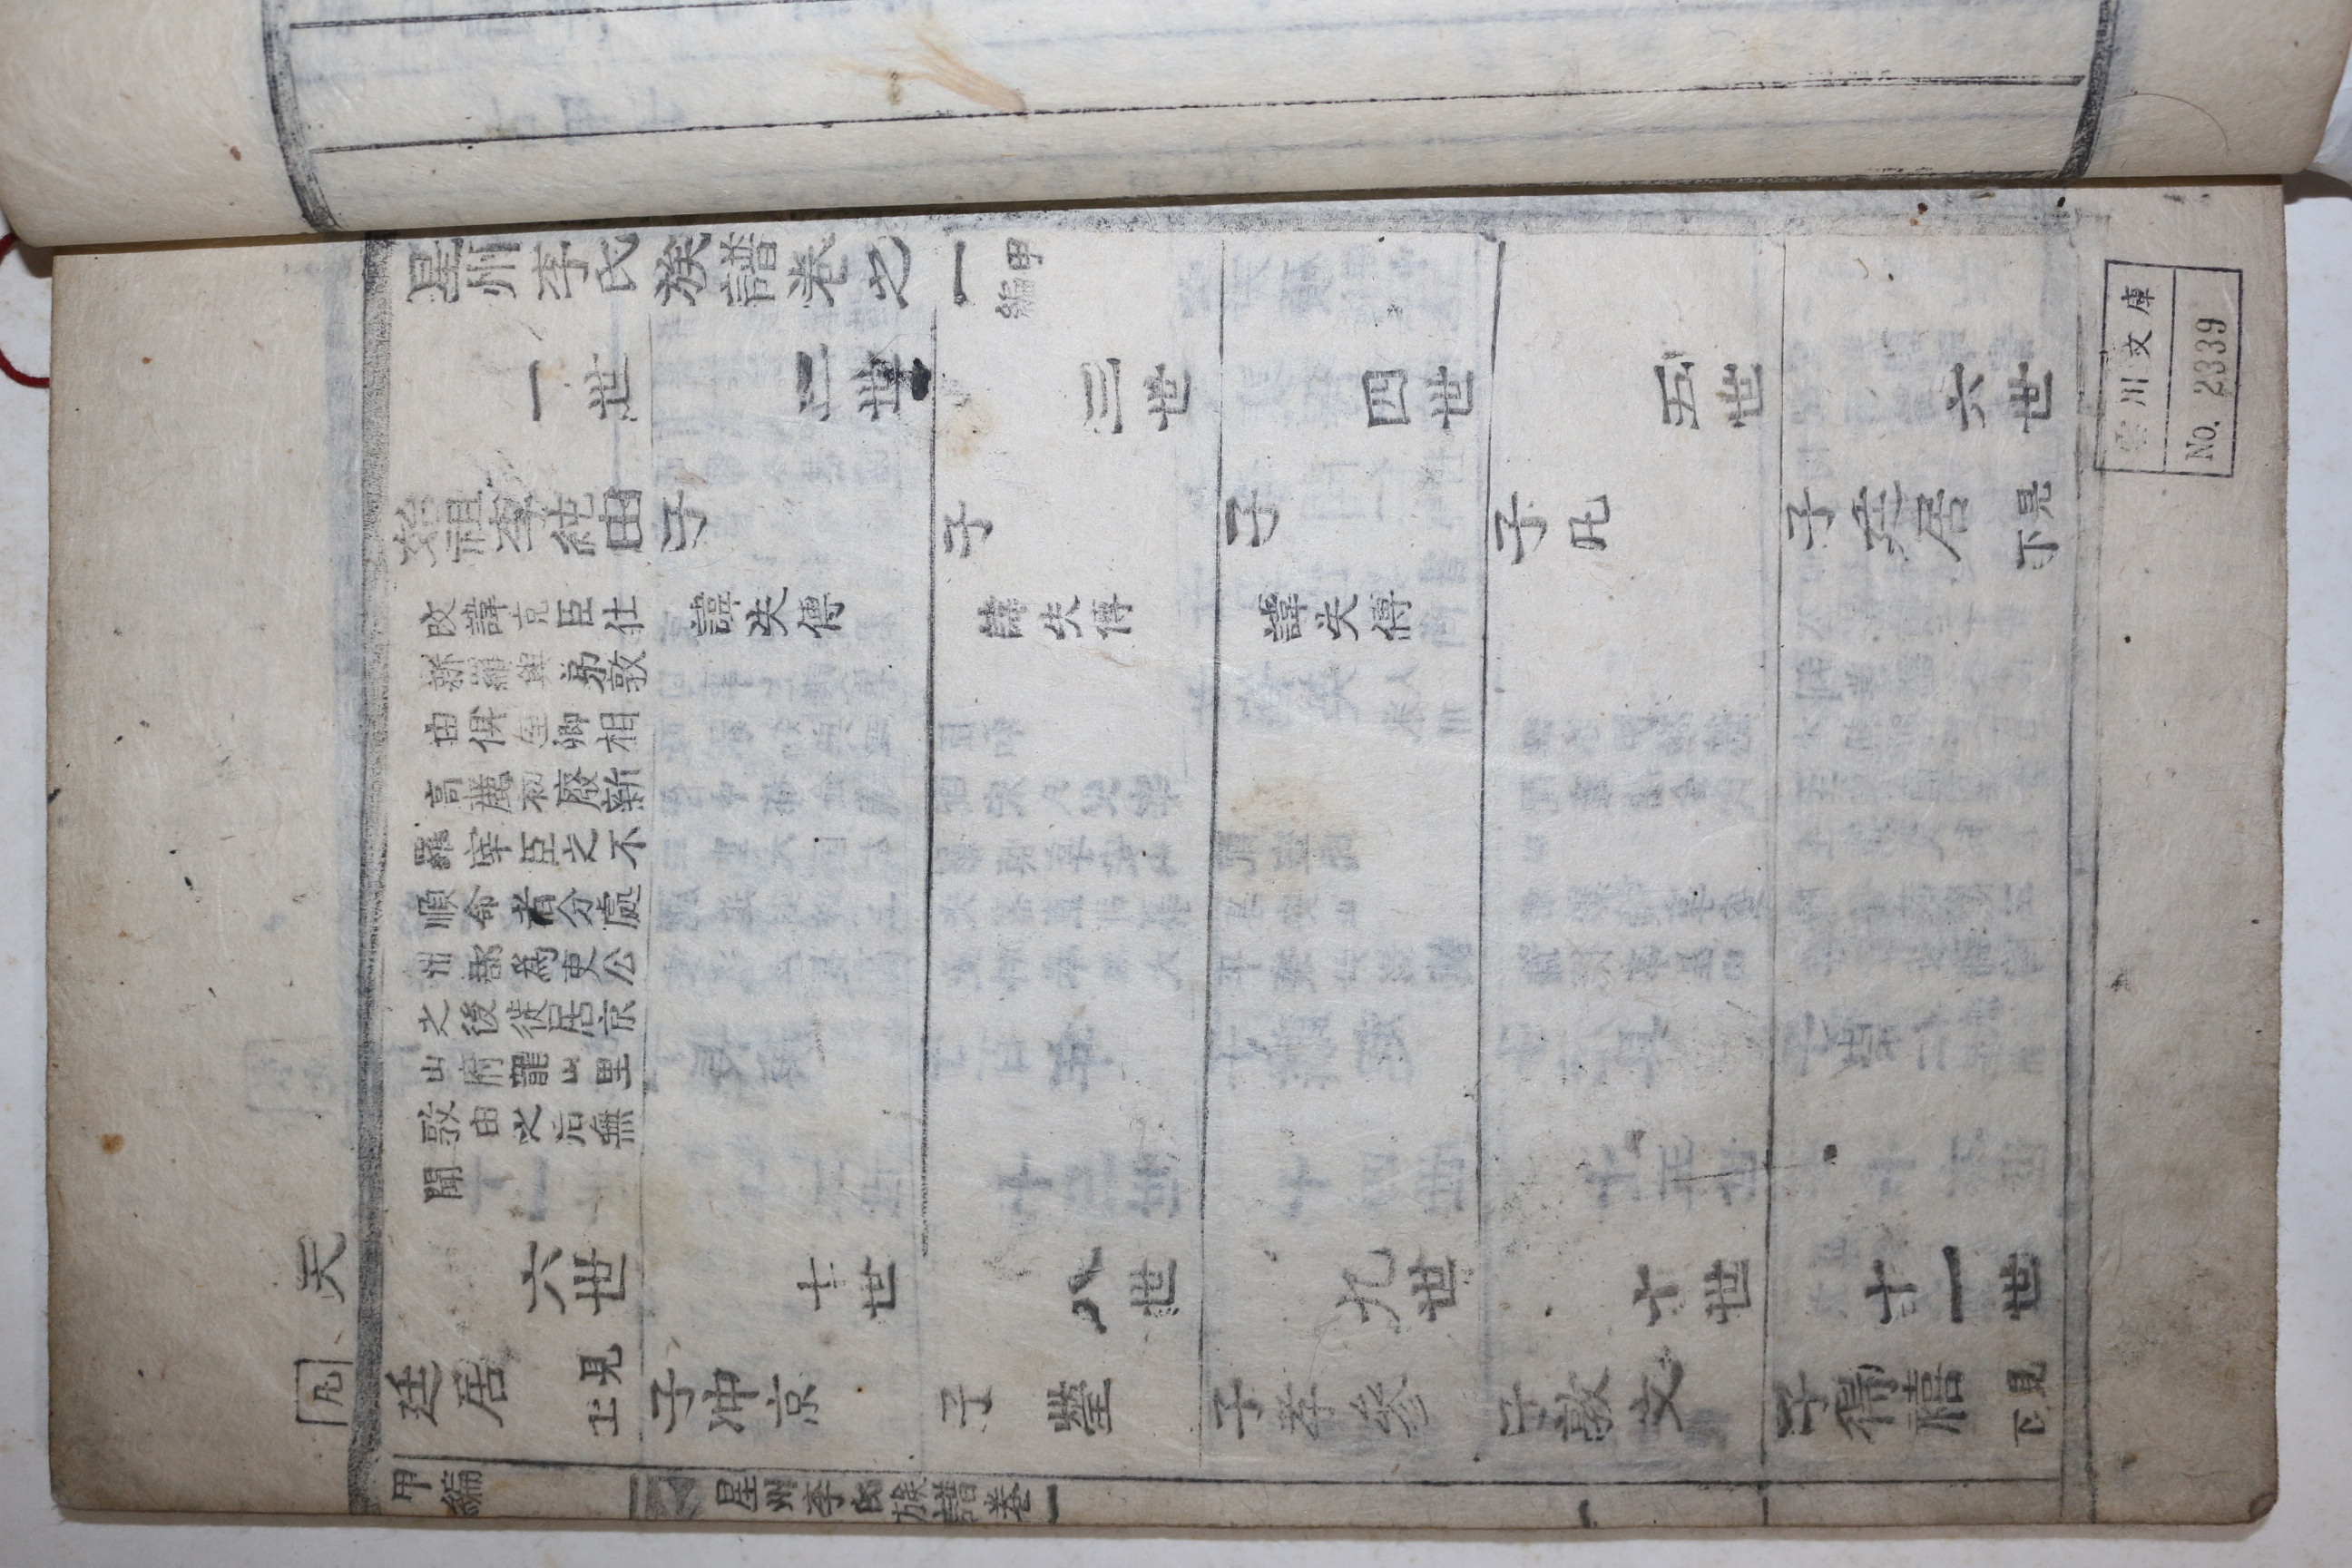 星州李氏族譜卷之一 甲編
一世
二世
三世
四世
五世
六世
始祖李純由
改諱克臣仕
新羅與弟敦
由俱至卿相
高麗初廢新
羅宰臣之不
順命者分處
州郡爲吏公
之後徙居京
山府龍山里
敦由之后無
聞
子
諱失傳
子
諱失傳
子
諱失傳
子凡
子廷居 見下
天
六世
七世
八世
九世
十世
十一世
凡
廷居 見上
子冲京
子瑩
子孝參
子敦文
子得禧 見下
甲編
星州李氏族譜卷一
川文庫
No. 2339